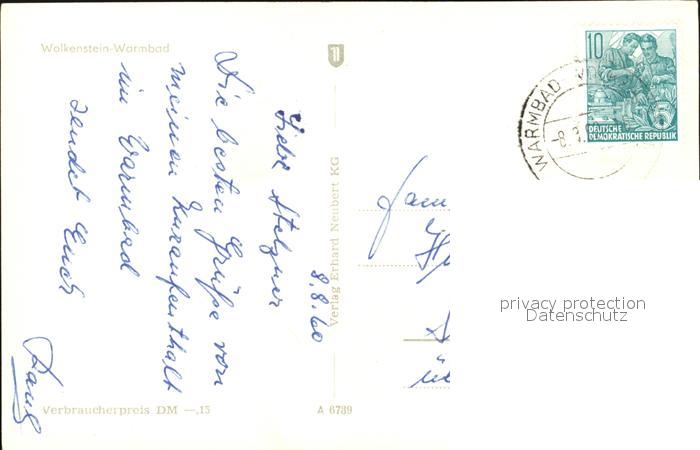 Wolkenstein-Warmbad
8.8.60
Liebe Stelzner
Die besten Grüße von
meinem Kuraufenthalt
in Warmbad
sendet Euch
Verbraucherpreis DM —,15
A 6739
Verlag Erhard Neubert KG
10
DEUTSCHE
DEMOKRATISCHE REPUBLIK
WARMBAD
-8.
Fam
privacy protection
Datenschutz